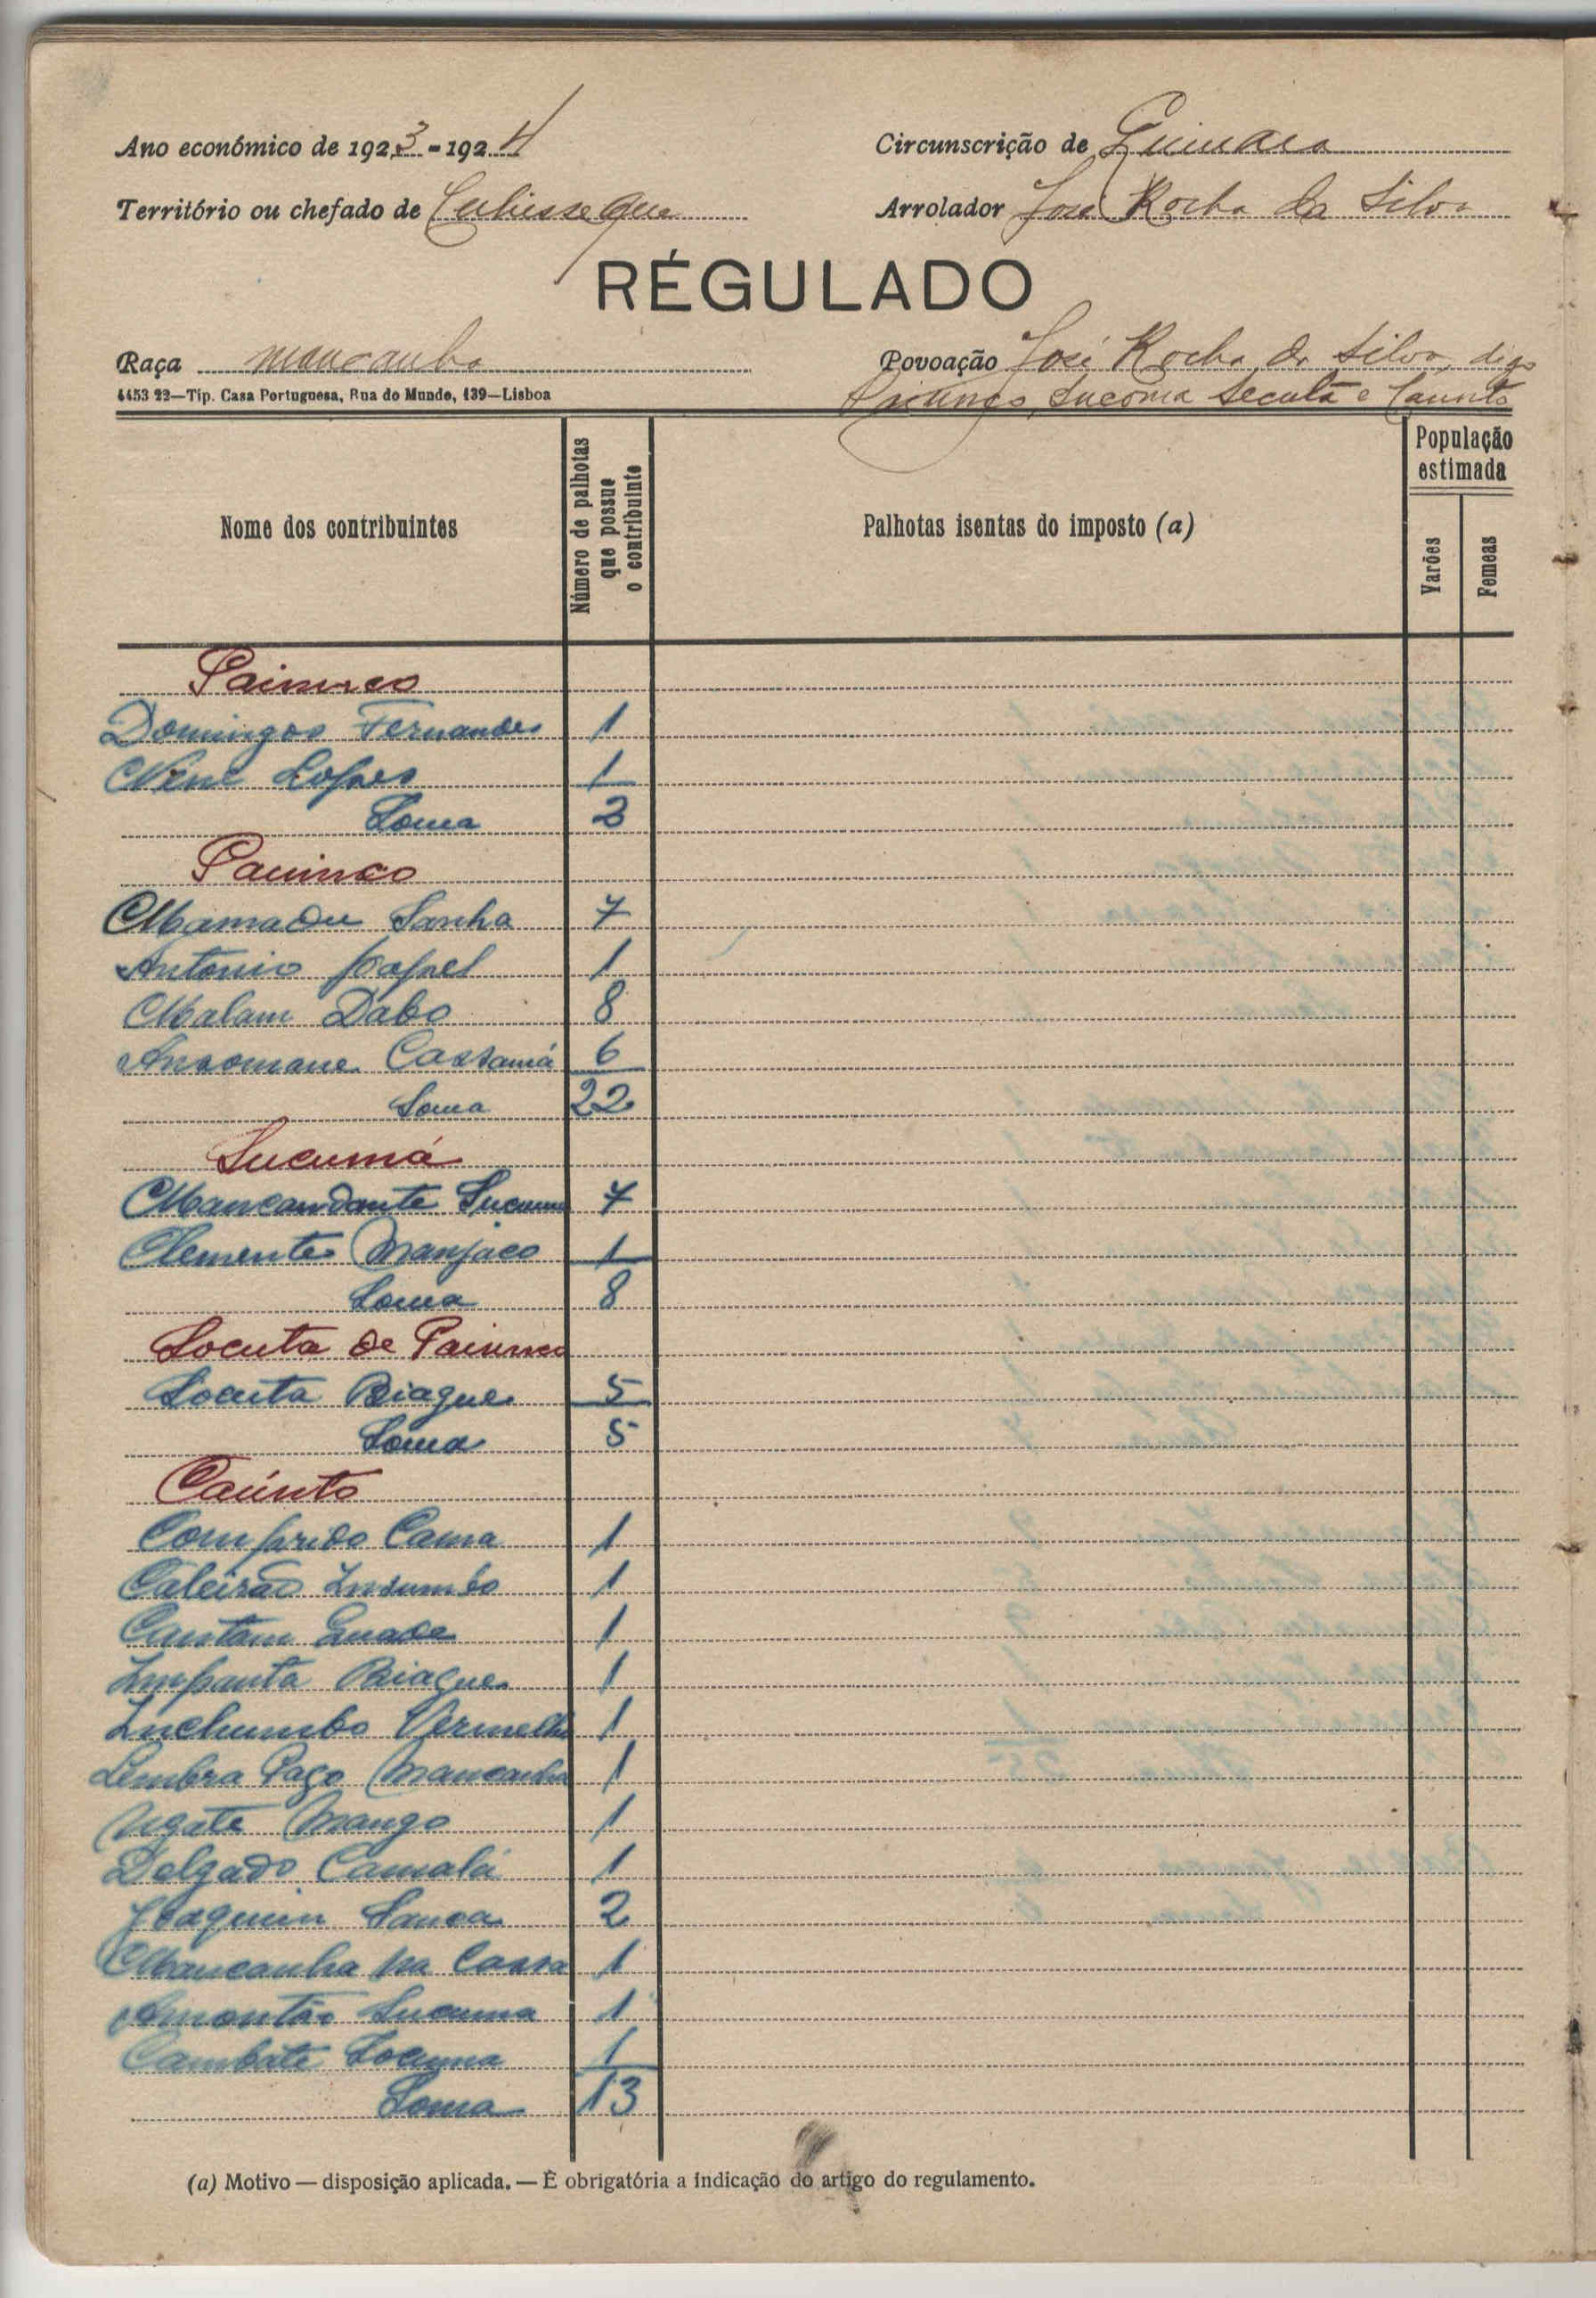 Ano económico de 1923-1924
Circunscrição de
Território ou chefado de Cubisseque
Arrolador José Rocha da Silva
RÉGULADO
Raça mancanha
Povoação José Rocha da Silva, digo
4453 22—Tip. Casa Portuguesa, Rua do Mundo, 139—Lisboa
Paiunco, Sucoma Secutã e Caunto
Nome dos contribuintes
Número de palhotas que possue o contribuinte
Palhotas isentas do imposto (a)
População estimada
Varões
Femeas
Paiunco
Domingos Fernandes 1
Nene Lopes 1
Soma 2
Paiunco
Mamadu Sanha 7
Antonio Papel 1
Malam Dabo 8
Ansomane Cassamá 6
Soma 22
Sucumá
Mancandante Sucuma 7
Clemente Manjaco 1
Soma 8
Socuta de Paiunco
Socuta Biague 5
Soma 5
Caúnto
Comprido Cama 1
Caleirão Insumbo 1
Cantam Quade 1
Impanta Biague 1
Inchumbo Vermelho 1
Lembra Paço Mancanha 1
Ugate Mango 1
Delgado Camalá 1
Joaquim Sanca 2
Mancanha na Cassa 1
Amontão Sucuma 1
Cambate Socuma 1
Soma 13
(a) Motivo — disposição aplicada. — É obrigatória a indicação do artigo do regulamento.